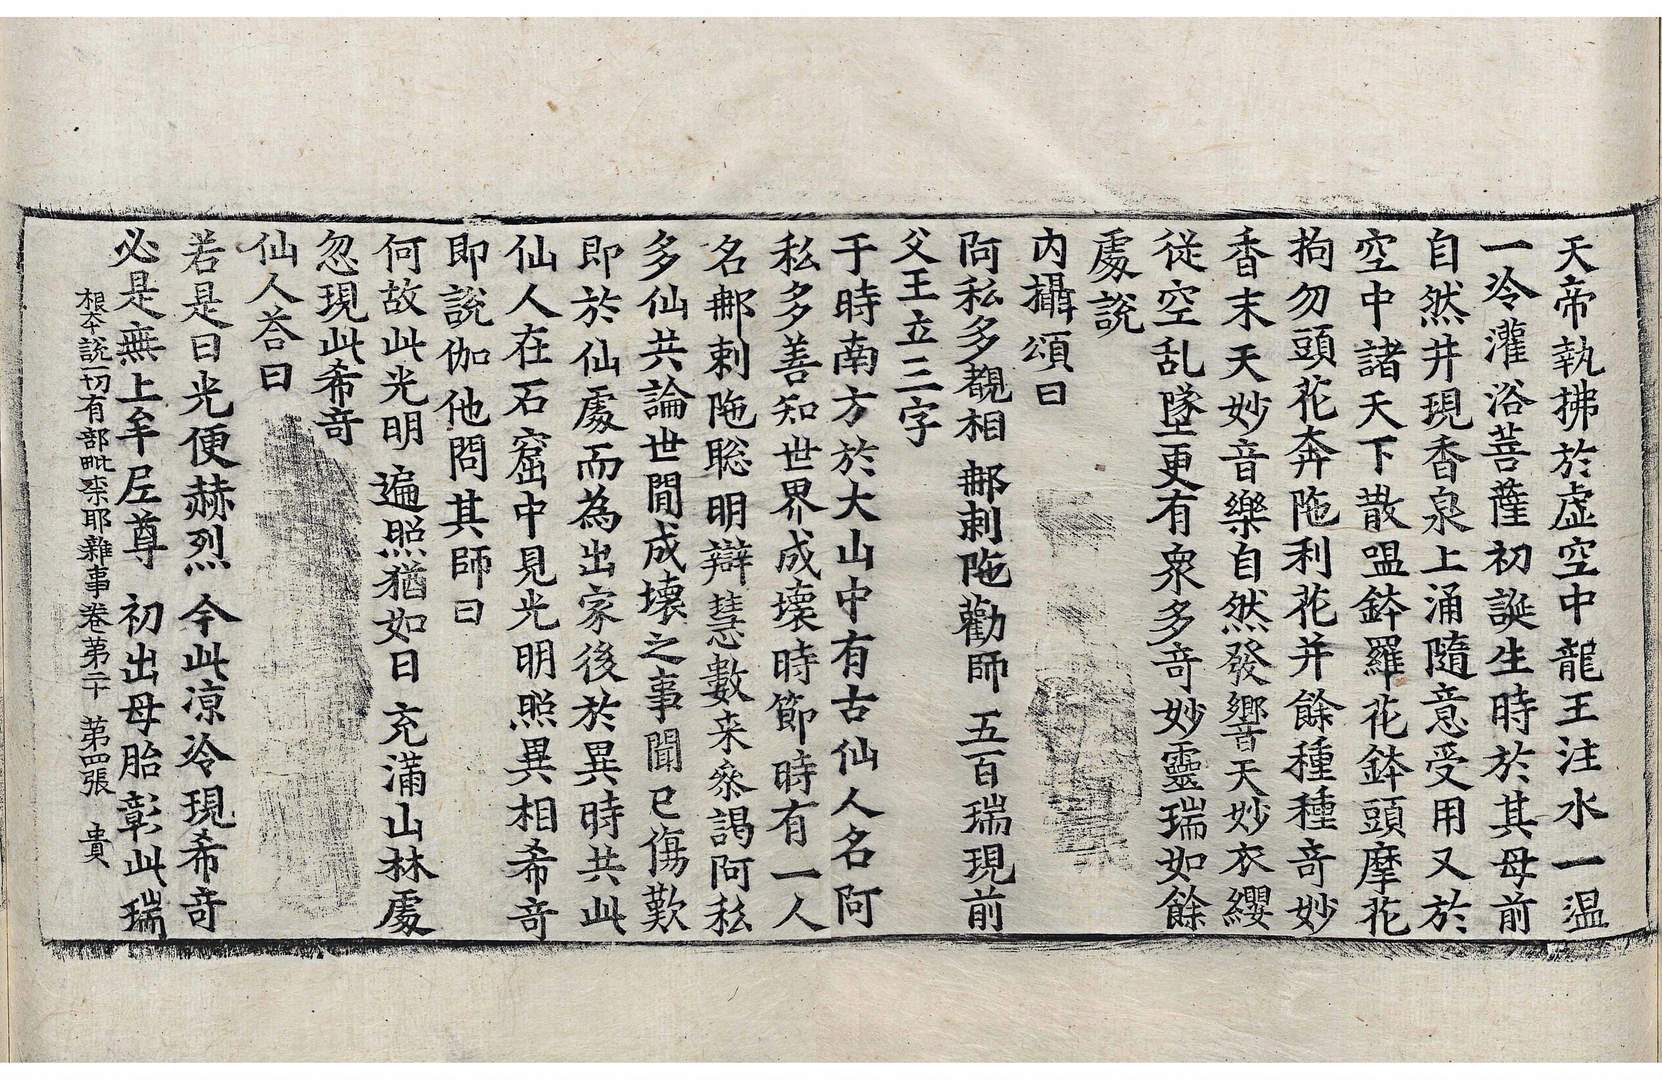 天帝執拂於虛空中龍王注水一溫
一冷灌浴菩薩初誕生時於其母前
自然井現香泉上涌隨意受用又於
空中諸天下散嗢鉢羅花鉢頭摩花
拘勿頭花奔陁利花并餘種種奇妙
香末天妙音樂自然發響天妙衣纓
從空乱墜更有衆多奇妙靈瑞如餘
處說
內攝頌曰
阿私多覩相 那剌陁勸師 五百瑞現前
父王立三字
于時南方於大山中有古仙人名阿
私多善知世界成壞時節時有一人
名那剌陁聡明辯慧數来叅謁阿私
多仙共論世間成壞之事聞已傷歎
即於仙處而為出家後於異時共此
仙人在石窟中見光明照異相希奇
即說伽他問其師曰
何故此光明 遍照猶如日 充滿山林處
忽現此希奇
仙人荅曰
若是日光便赫烈 今此凉冷現希奇
必是無上牟尼尊 初出母胎彰此瑞
根本說一切有部毗柰耶雜事卷第二十 第四張 貴